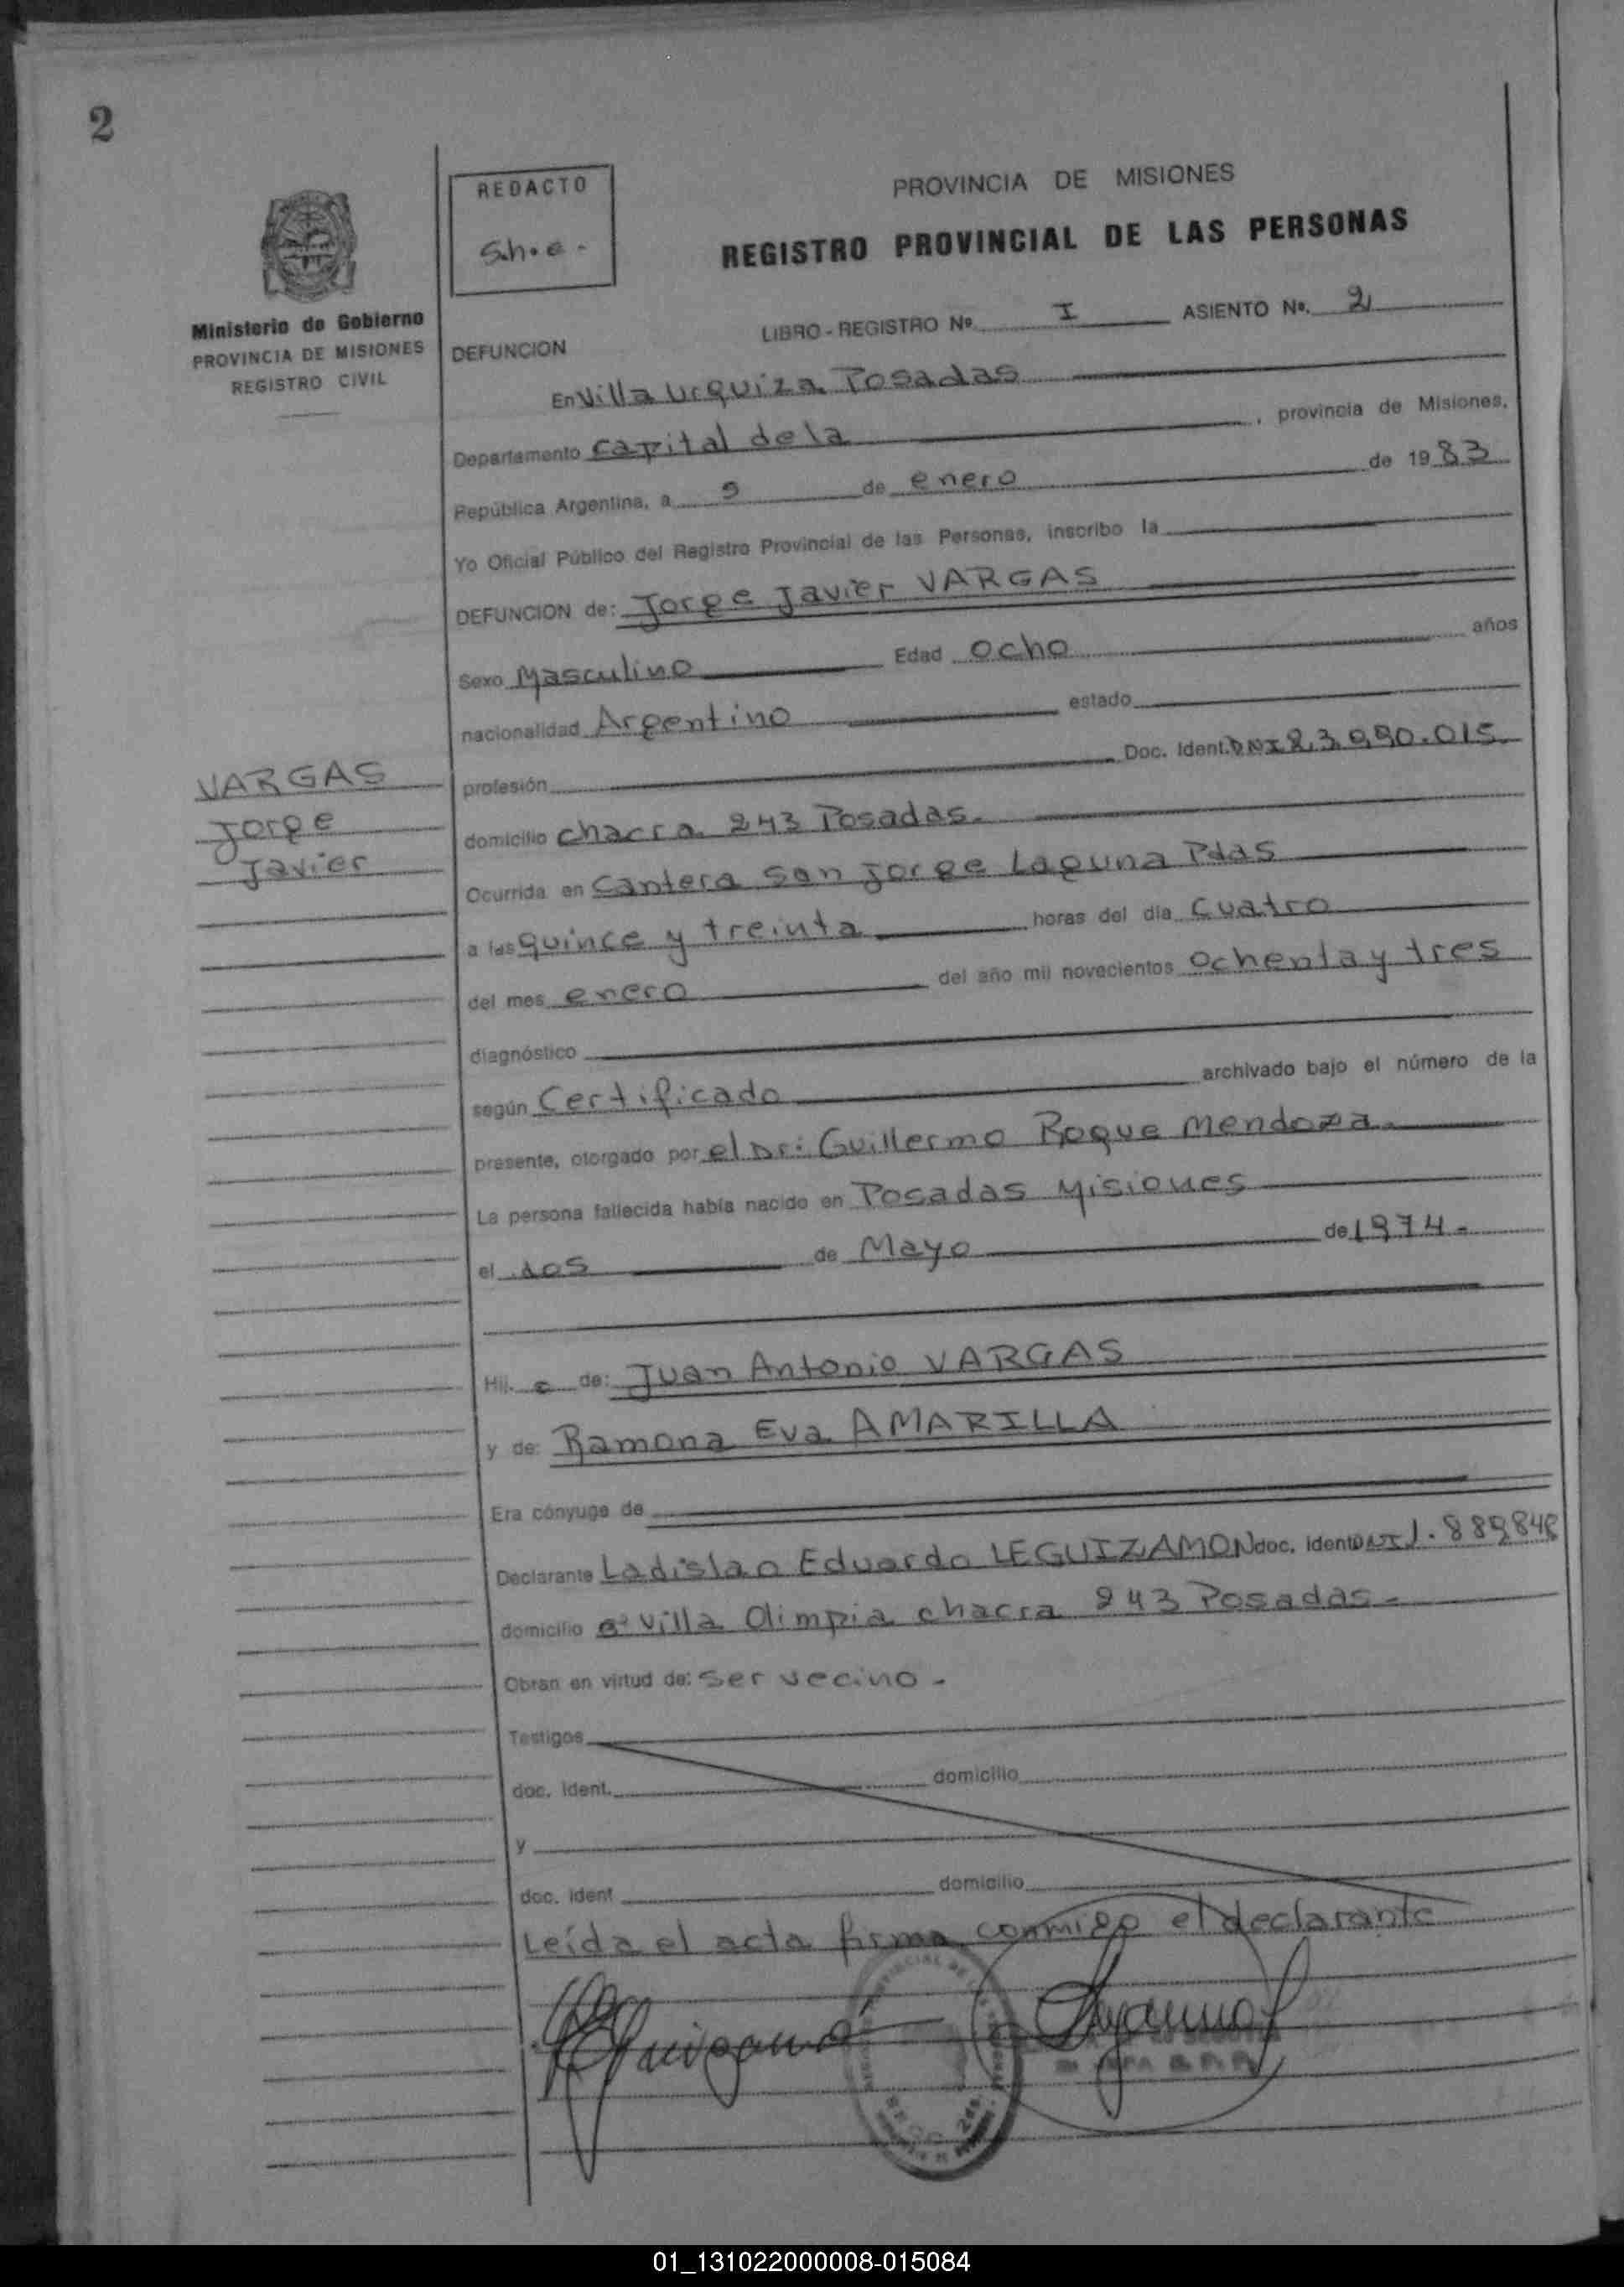 2
REDACTO
S.h.e.-
PROVINCIA DE MISIONES
REGISTRO PROVINCIAL DE LAS PERSONAS
Ministerio de Gobierno
PROVINCIA DE MISIONES
REGISTRO CIVIL
LIBRO - REGISTRO Nº I ASIENTO Nº. 2
DEFUNCION
En Villa Urquiza Posadas
Departamento capital de la, provincia de Misiones,
República Argentina, a 5 de enero de 1983
Yo Oficial Público del Registro Provincial de las Personas, inscribo la
DEFUNCION de: Jorge Javier VARGAS
Sexo Masculino Edad ocho años
nacionalidad Argentino estado
profesión Doc. Ident. DNI 23.990.015.
VARGAS
Jorge
Javier
domicilio chacra 243 Posadas.
Ocurrida en Cantera San Jorge Laguna Pdas
a las quince y treinta horas del día cuatro
del mes enero del año mil novecientos ochenta y tres
diagnóstico
según Certificado archivado bajo el número de la
presente, otorgado por el Dr: Guillermo Roque Mendoza.
La persona fallecida había nacido en Posadas Misiones
el dos de Mayo de 1974-
Hij. o de: Juan Antonio VARGAS
y de: Ramona Eva AMARILLA
Era cónyuge de
Declarante Ladislao Eduardo LEGUIZAMON doc. Ident DNI
domicilio Villa Olimpia chacra 243 Posadas-
Obran en virtud de: ser vecino-
Testigos
doc. Ident. domicilio
y
doc. Ident domicilio
Leída el acta firma conmigo el declarante
01_131022000008-015084